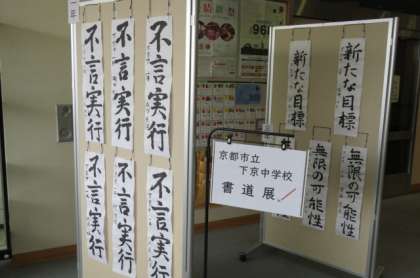 不言実行
不言実行
不言実行
不言実行
不言実行
不言実行
京都市立
下京中学校
書道展
新たな目標
新たな目標
無限の可能性
無限の可能性